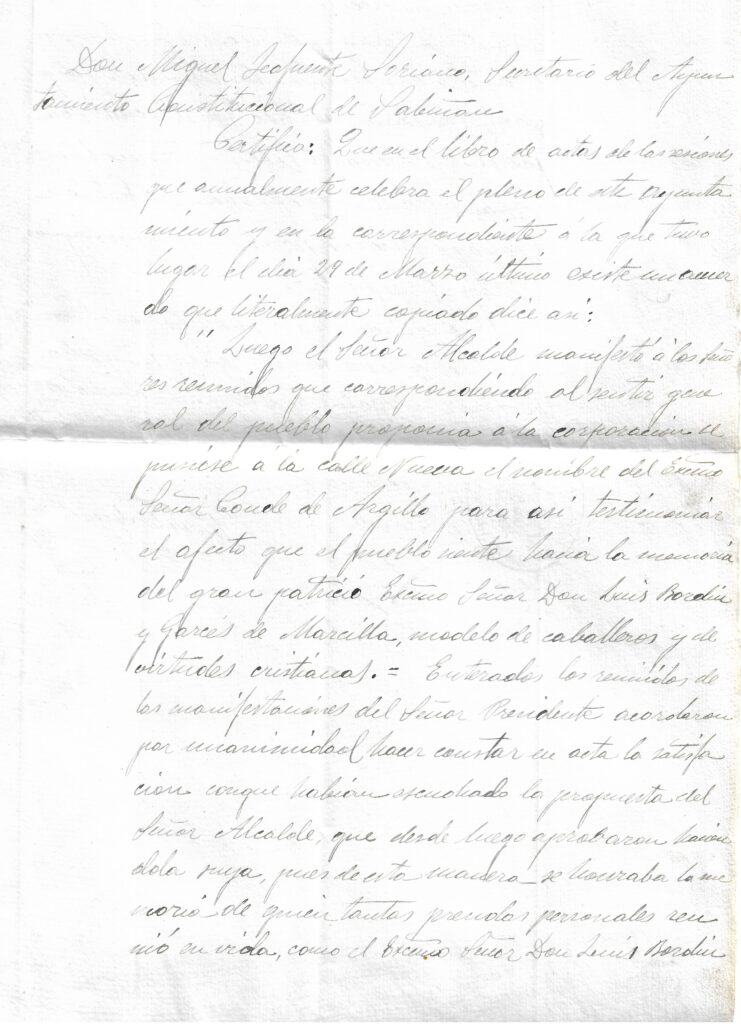 Don Miguel Lafuente Soriano, Secretario del Ayun
tamiento Constitucional de Sabiñan
Certifico: Que en el libro de actas de las sesiones
que anualmente celebra el pleno de este Ayunta
miento y en la correspondiente á la que tuvo
lugar el dia 29 de Marzo último existe un acuer
do que literalmente copiado dice asi:
" Luego el Señor Alcalde manifestó á los Seño
res reunidos que correspondiéndo al sentir gene
ral del pueblo proponia á la corporación se
pusiése á la calle Nueva el nombre del Exc̃mo
Señor Conde de Argillo para así testimoniar
el afecto que el pueblo siente hacia la memoria
del gran patrició Exc̃mo Señor Don Luis Bordiu
y Garcés de Marcilla, modelo de caballeros y de
virtudes cristianas. = Enterados los reunidos de
las manifestaciónes del Señor Presidente acordaron
por unanimidad hacer constar en acta la satisfa
ción conque habián escuchado la propuesta del
Señor Alcalde, que desde luego aprobaron hacien
dola suya, pues de esta manera se honraba la me
moria de quien tantas prendas personales reu
nió en vida, como el Exc̃mo Señor Don Luis Bordiu